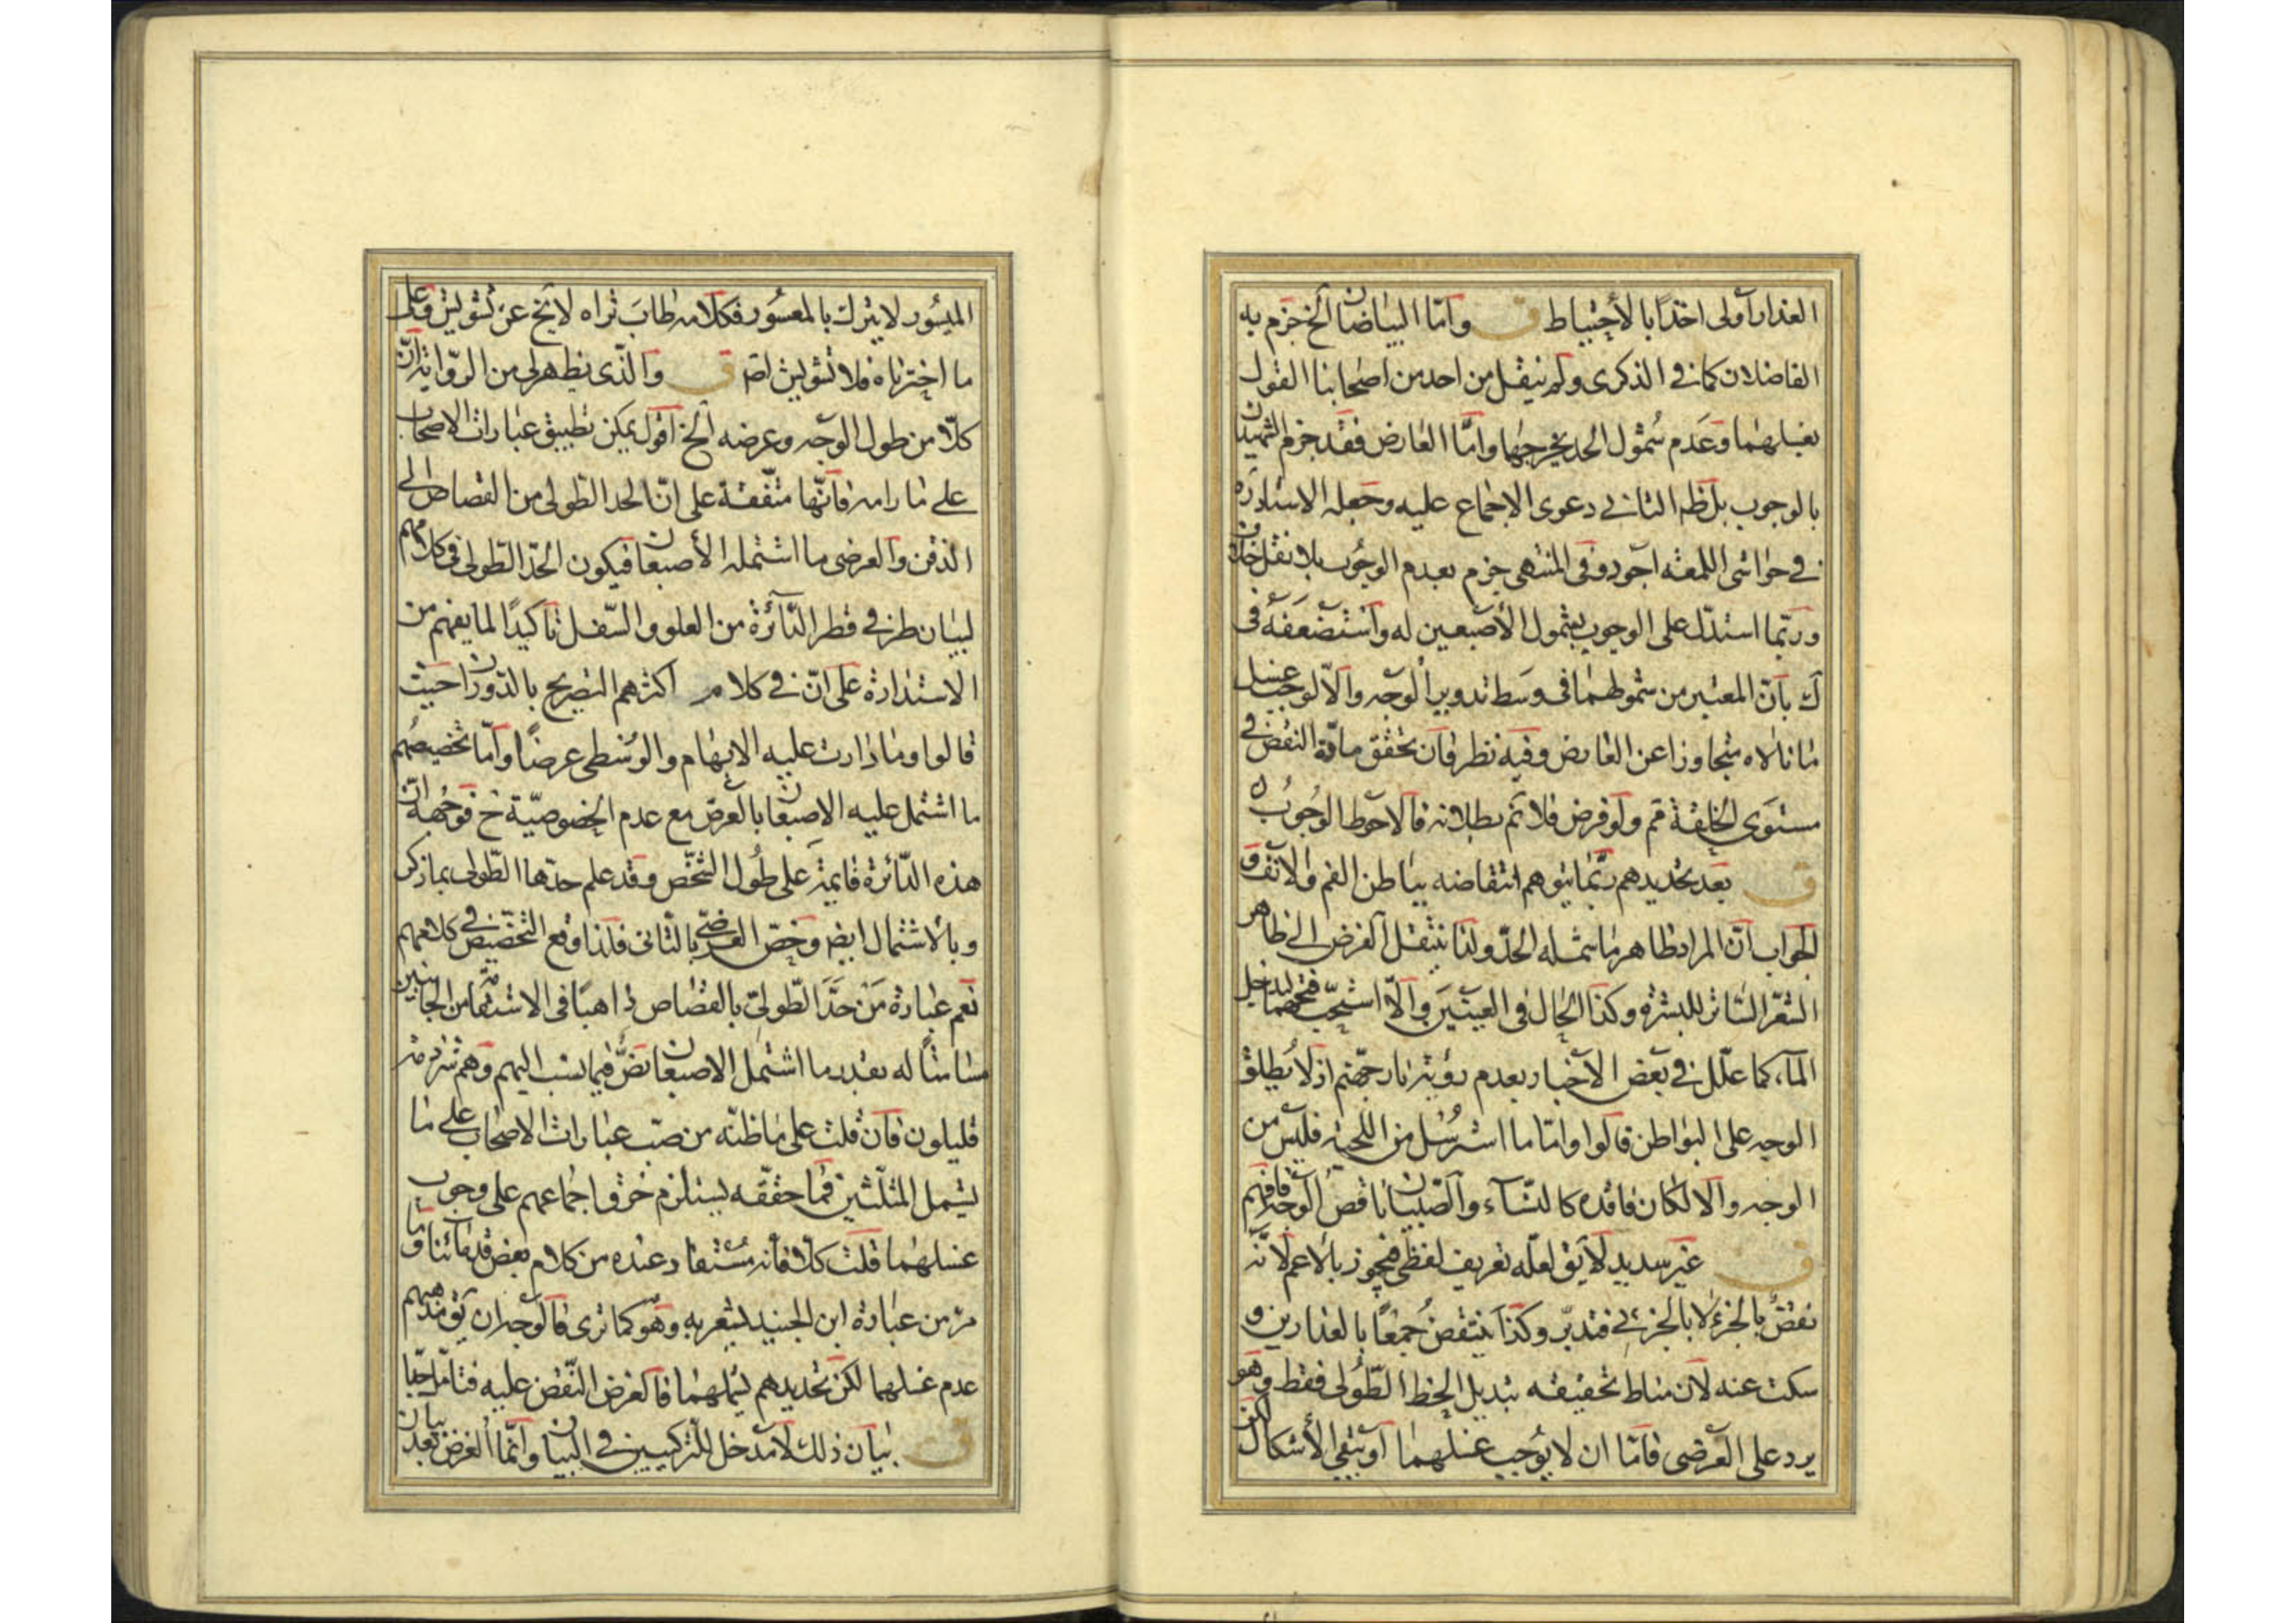 العذار اولى اخذا بالاحتياط ق واما البياضان الخ جزم به
الفاضلان كما في الذكرى ولم ينقل من احد من اصحابنا القول
بغسلهما وعدم شمول الحد يخرجها واما العارض فقد جزم الشهيدان
بالوجوب بل ظ الثاني دعوى الاجماع عليه وجعله الاستاد ره
في حواشي اللمعة اجود وفي المنتهى جزم بعدم الوجوب بلا نقل خلاف
وربما استدل على الوجوب بشمول الاصبعين له واستضعفه في
ك بان المعتبر من شمولهما في وسط تدوير الوجه والا لوجب غسل
ما نالاه متجاوزا عن العارض وفيه نظر فان تحقق مادة النقض في
مستوى الخلقة ثم ولو فرض فلا نم بطلانه فالاحوط الوجوب
ق بعد تحديدهم ربما يتوهم انتقاضه بباطن الفم والانف و
الجواب ان المراد ظاهر ما شمله الحد ولذا ينتقل الفرض الى ظاهر
الشعر الساتر للبشرة وكذا الحال في العينين والا استحب فتحهما ليدخل
الماء كما علل في بعض الاخبار بعدم رؤية نار جهنم اذ لا يطلق
الوجه على البواطن قالوا واما ما استرسل من اللحية فليس من
الوجه والا لكان فاقده كالنساء والصبيان ناقص الوجه فافهم
ق غير سديد لا يق لعله تعريف لفظي فيجوز بالاعم لانه
نقض بالجزء لا بالجزئي فتدبر وكذا ينتقض جمعا بالعذارين و
سكت عنه لان مناط تحقيقه تبديل الخط الطولي فقط وهو
يرد على العرضي فاما ان لا يوجب غسلهما او يبقى الاشكال لكن
الميسور لا يترك بالمعسور فكلامه طاب ثراه لا يخ عن تشويش وعلى
ما اخترناه فلا تشويش اصّ ق والذي يظهر لي من الرواية ان
كلا من طول الوجه وعرضه الخ اقول يمكن تطبيق عبارات الاصحاب
على ما رامه فانها متفقة على ان الحد الطولي من القصاص الى
الذقن والعرضي ما اشتمله الاصبعان فيكون الحد الطولي في كلامهم
لبيان طرفي قطر الدائرة من العلو والسفل تاكيدا لما يفهم من
الاستدارة على ان في كلام اكثرهم التصريح بالدوران حيث
قالوا وما دارت عليه الابهام والوسطى عرضا واما تخصيصهم
ما اشتمل عليه الاصبعان بالعرض مع عدم الخصوصية ح فوجهه ان
هذه الدائرة قايمة على طول الشخص وقد علم حدها الطولي بما ذكر
وبالاشتمال ايض وخص العرضي بالثاني فلذا وقع التخصيص في كلامهم
نعم عبارة من حد الطولي بالقصاص ذاهبا في الاستتمام من الجانبين
مساشا له بقدر ما اشتمل الاصبعان نص فيما نسب اليهم وهم شرذمة
قليلون فان قلت على ما ظنه من صب عبارات الاصحاب على ما
يشمل المثلثين فما حققه يستلزم خرق اجماعهم على وجوب
غسلهما قلت كلا فانه مستفاد عنده من كلام بعض قدمائنا وما
مر من عبارة ابن الجنيد يشعر به وهو كما ترى فالوجه ان يق مذهبهم
عدم غسلهما لكن تحديدهم يشملهما فالغرض النقض عليه فتامل جدا
ق بيان ذلك لا مدخل للتركيبين في البيان وانما الغرض بعد بيان